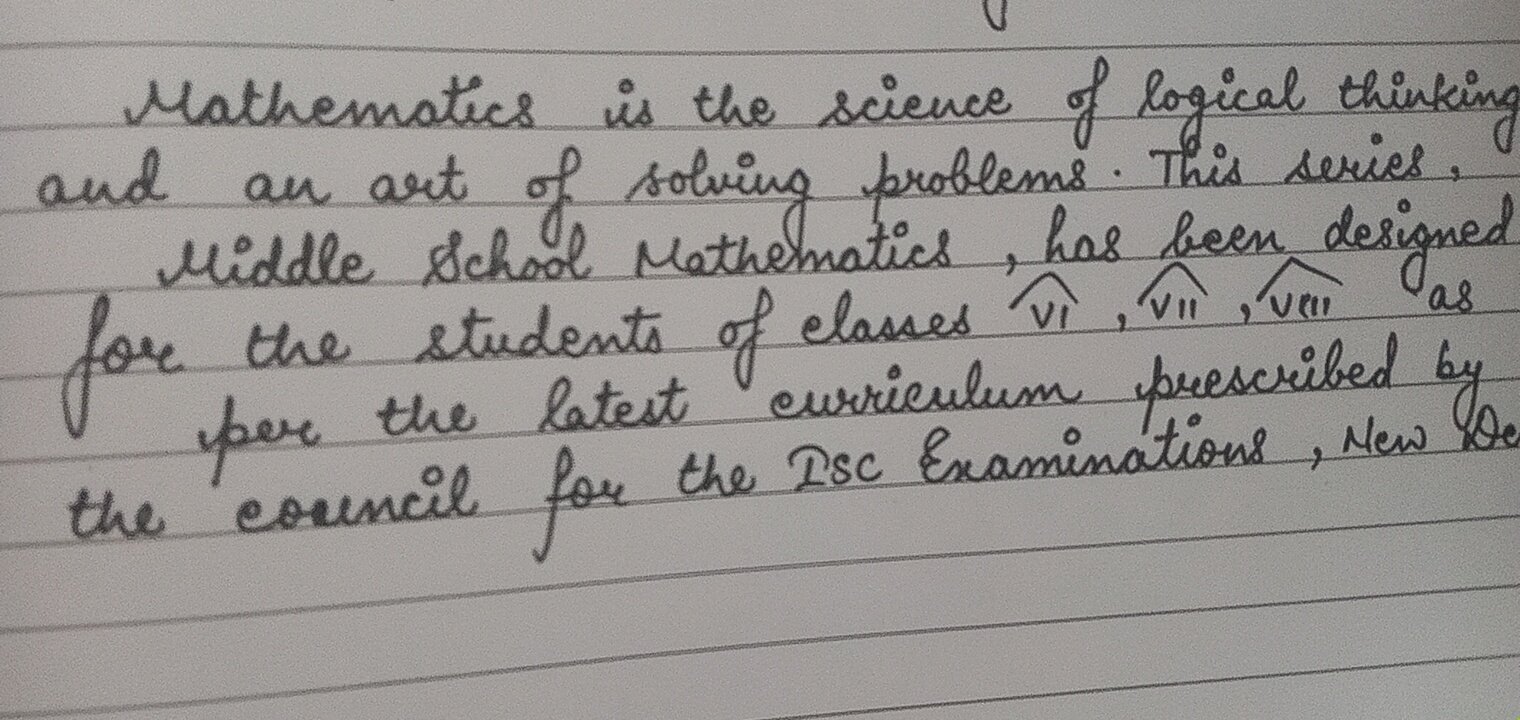 Mathematics is the science of logical thinking
and an art of solving problems. This series,
Middle School Mathematics, has been designed
for the students of classes VI, VII, VIII as
per the latest curriculum prescribed by
the council for the ISC Examinations, New De